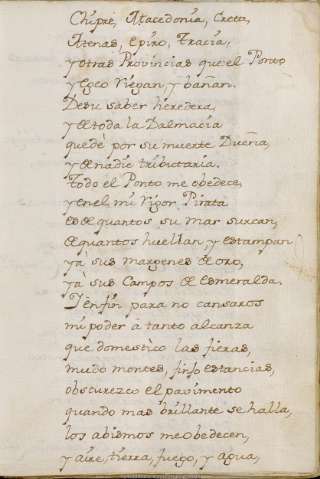 Chipre, Macedonia, Creta,
Atenas, Epiro, Tracia,
y otras Provincias que el Ponto
y Egeo riegan, y bañan.
De su saber heredera,
y de toda la Dalmacia
quedè por su muerte Dueña,
y de nadie tributaria.
Todo el Ponto me obedece,
y en el mi Vigor Pirata
es de quantos su mar surcan,
de quantos huellan, y estampan
ya sus margenes de oro,
yà sus Campos de esmeralda.
I en fin para no cansaros
mi poder à tanto alcanza
que domestico las fieras,
mudo montes, finjo estancias,
obscurezco el pavimento
quando mas brillante se halla,
los abismos me obedecen,
y aire, tierra, fuego, y agua,